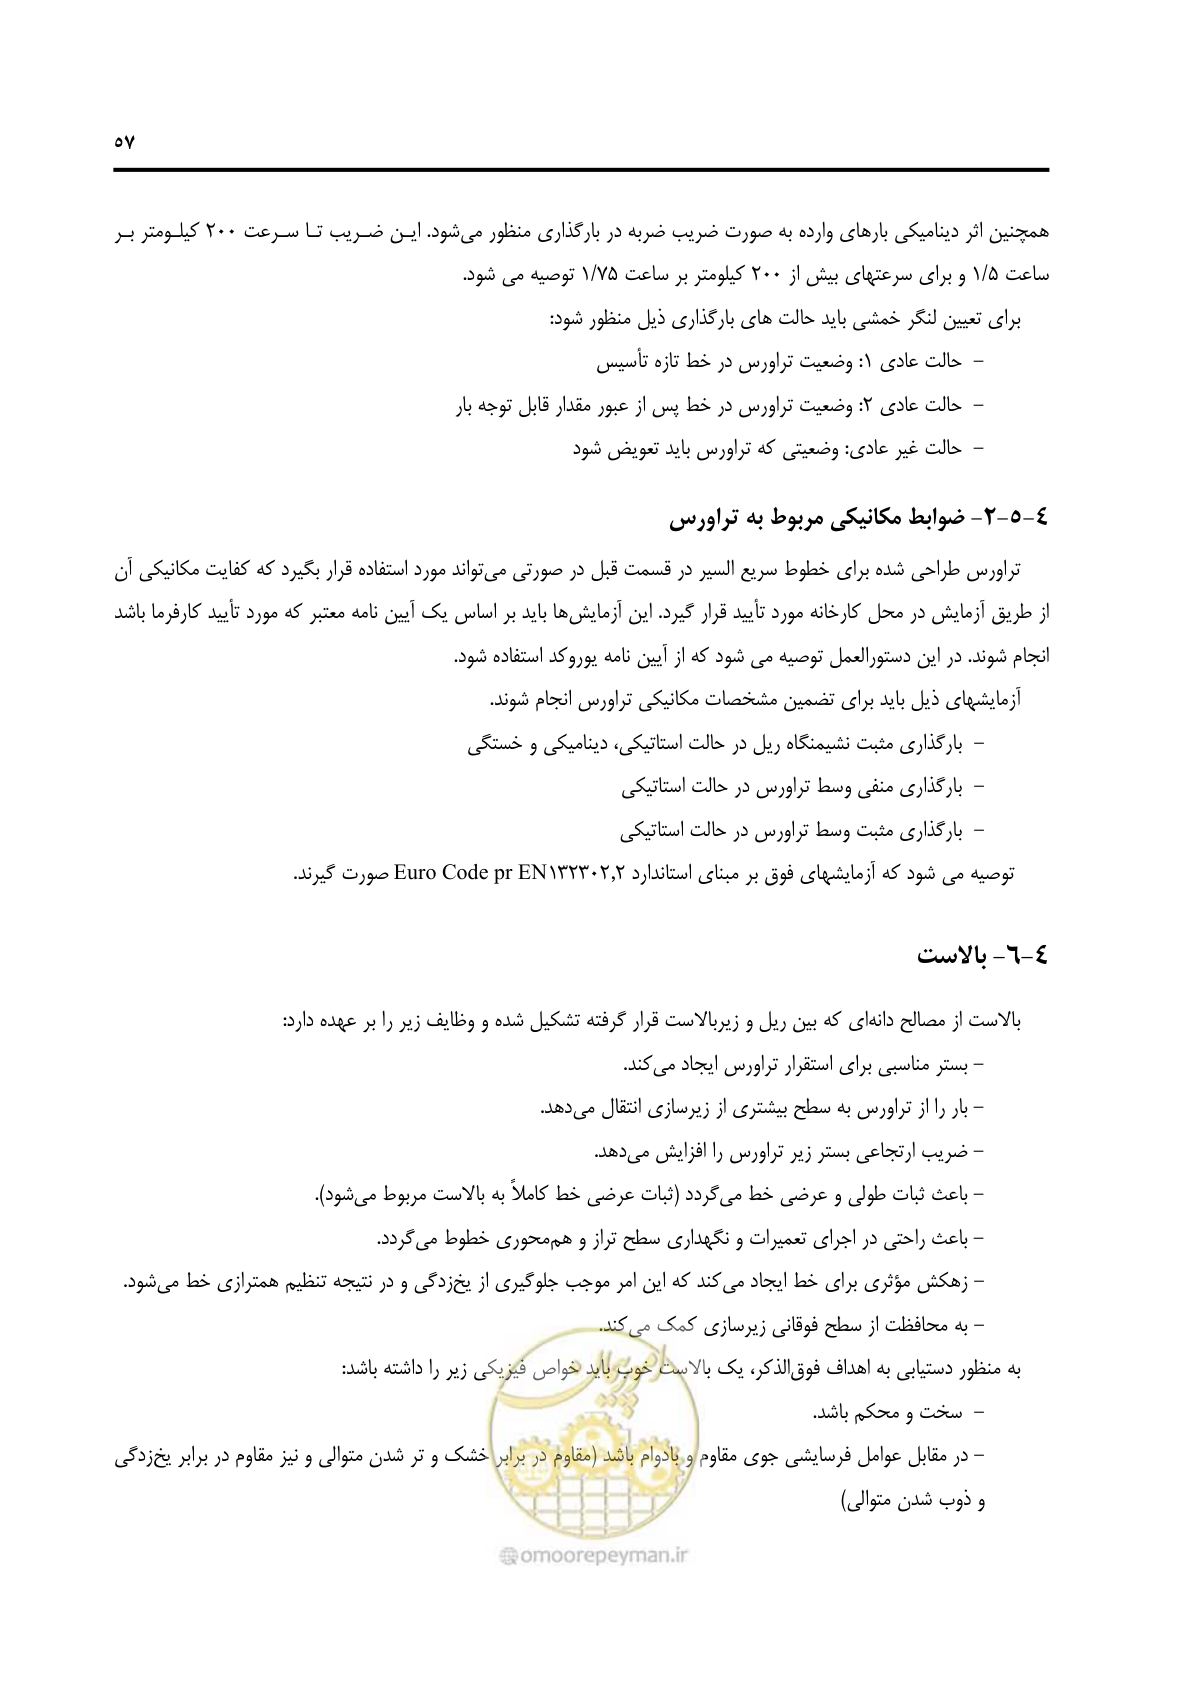 ۵۷
همچنین اثر دینامیکی بارهای وارده به صورت ضریب ضربه در بارگذاری منظور می‌شود. ایـن ضـریب تـا سـرعت ۲۰۰ کیلـومتر بـر
ساعت ۱/۵ و برای سرعتهای بیش از ۲۰۰ کیلومتر بر ساعت ۱/۷۵ توصیه می شود.
برای تعیین لنگر خمشی باید حالت های بارگذاری ذیل منظور شود:
– حالت عادی ۱: وضعیت تراورس در خط تازه تأسیس
– حالت عادی ۲: وضعیت تراورس در خط پس از عبور مقدار قابل توجه بار
– حالت غیر عادی: وضعیتی که تراورس باید تعویض شود
٤-۵-۲- ضوابط مکانیکی مربوط به تراورس
تراورس طراحی شده برای خطوط سریع السیر در قسمت قبل در صورتی می‌تواند مورد استفاده قرار بگیرد که کفایت مکانیکی آن
از طریق آزمایش در محل کارخانه مورد تأیید قرار گیرد. این آزمایش‌ها باید بر اساس یک آیین نامه معتبر که مورد تأیید کارفرما باشد
انجام شوند. در این دستورالعمل توصیه می شود که از آیین نامه یوروکد استفاده شود.
آزمایشهای ذیل باید برای تضمین مشخصات مکانیکی تراورس انجام شوند.
– بارگذاری مثبت نشیمنگاه ریل در حالت استاتیکی، دینامیکی و خستگی
– بارگذاری منفی وسط تراورس در حالت استاتیکی
– بارگذاری مثبت وسط تراورس در حالت استاتیکی
توصیه می شود که آزمایشهای فوق بر مبنای استاندارد Euro Code pr EN۱۳۲۳۰۲,۲ صورت گیرند.
٤-٦- بالاست
بالاست از مصالح دانه‌ای که بین ریل و زیربالاست قرار گرفته تشکیل شده و وظایف زیر را بر عهده دارد:
– بستر مناسبی برای استقرار تراورس ایجاد می‌کند.
– بار را از تراورس به سطح بیشتری از زیرسازی انتقال می‌دهد.
– ضریب ارتجاعی بستر زیر تراورس را افزایش می‌دهد.
– باعث ثبات طولی و عرضی خط می‌گردد (ثبات عرضی خط کاملاً به بالاست مربوط می‌شود).
– باعث راحتی در اجرای تعمیرات و نگهداری سطح تراز و هم‌محوری خطوط می‌گردد.
– زهکش مؤثری برای خط ایجاد می‌کند که این امر موجب جلوگیری از یخ‌زدگی و در نتیجه تنظیم همترازی خط می‌شود.
– به محافظت از سطح فوقانی زیرسازی کمک می‌کند.
به منظور دستیابی به اهداف فوق‌الذکر، یک بالاست خوب باید خواص فیزیکی زیر را داشته باشد:
– سخت و محکم باشد.
– در مقابل عوامل فرسایشی جوی مقاوم و بادوام باشد (مقاوم در برابر خشک و تر شدن متوالی و نیز مقاوم در برابر یخ‌زدگی
و ذوب شدن متوالی)
امور پیمان
@omoorepeyman.ir